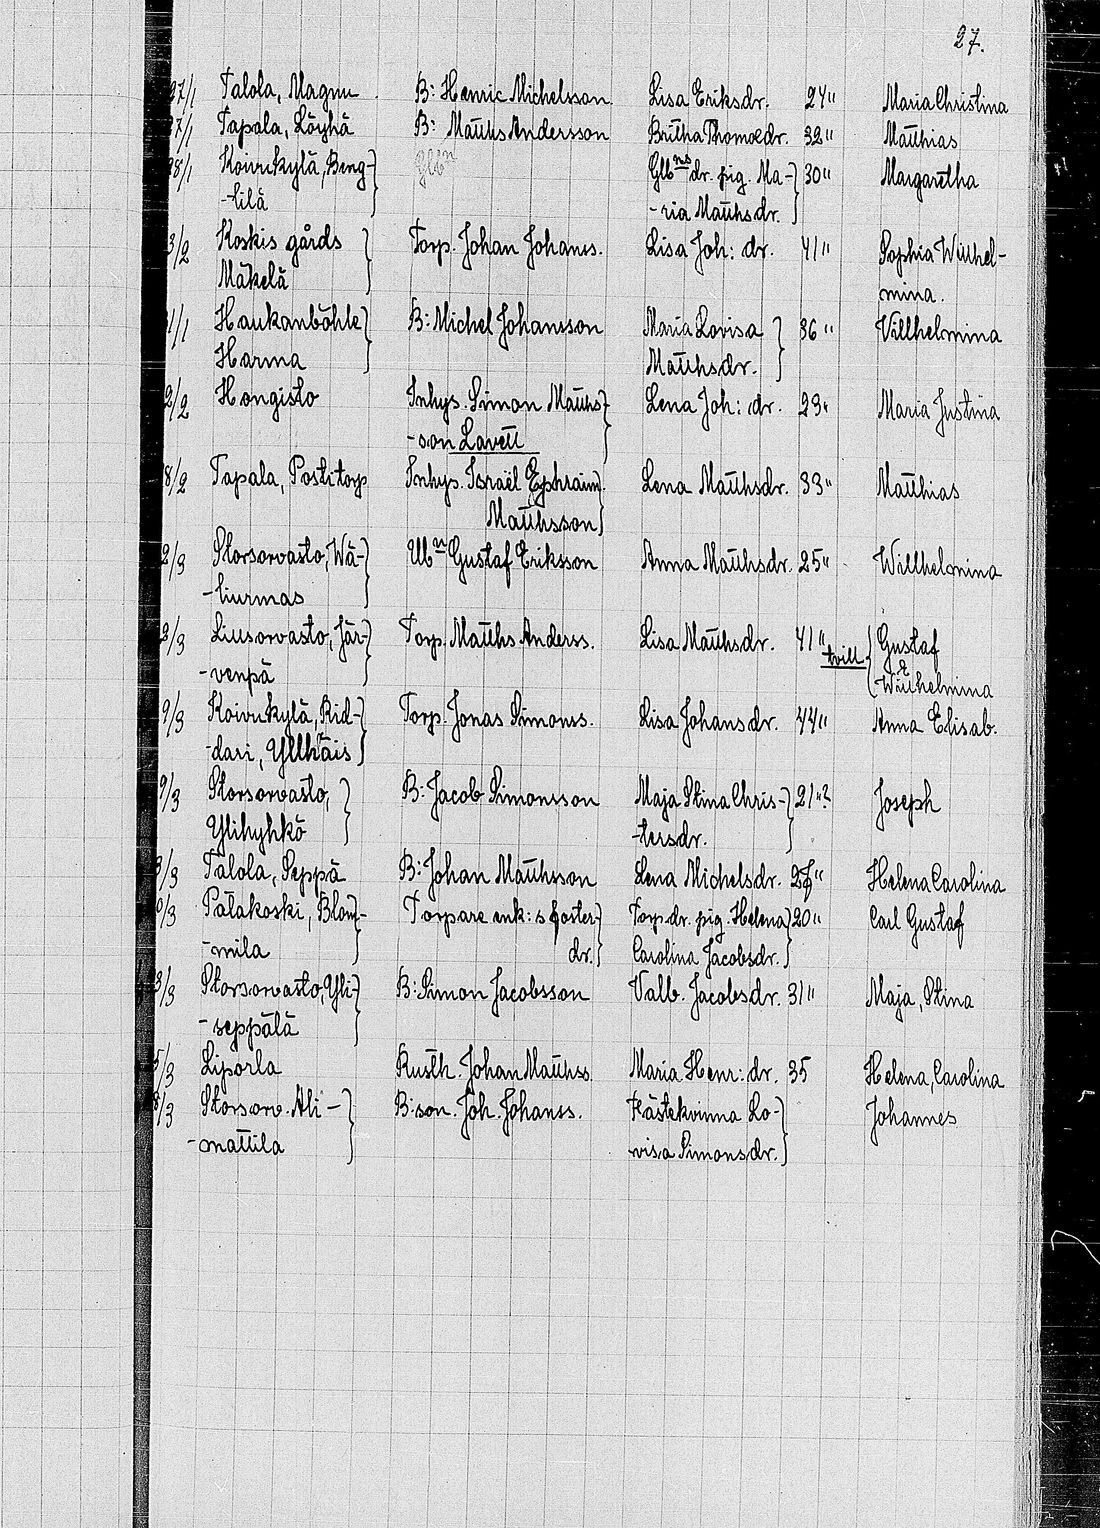 27.
27/1 Talola, Magnu B: Henric Michelsson Lisa Eriksdr. 24" Maria Christina
27/1 Tapala, Löyhä B: Matths Andersson Britha Thomædr. 32" Matthias
28/1 Koivukylä, Beng- Glbn Glbns dr. pig. Ma- 30" Margaretha
-tilä -ria Matthsdr.
3/2 Koskis gårds Torp. Johan Johanss. Lisa Joh: dr. 41" Sophia Willhel-
Mäkelä mina.
1/1 Haukanböhle B: Michel Johansson Maria Lovisa 36" Villhelmina
Harma Matthsdr.
2/2 Hongisto Inhys. Simon Matths- Lena Joh: dr. 23" Maria Justina
-son Lavett
8/2 Tapala, Postitorp Inhys. Israël Ephraim Lena Matthsdr. 33" Matthias
Matthsson
2/3 Storsorvasto, Wä- Ubn Gustaf Eriksson Anna Matthsdr. 25" Willhelmina
-liurmas
2/3 Liusorvasto, Jär- Torp. Matths Anderss. Lisa Matthsdr. 41" tvill. Gustaf
-venpä & Willhelmina
9/3 Koivukylä, Rid- Torp. Jonas Simonss. Lisa Johansdr. 44" Anna Elisab.
-dari, Yllhäis
9/3 Storsorvasto, B: Jacob Simonsson Maja Stina Chris- 21"? Joseph
Ylihyhkö -tersdr.
3/3 Talola, Seppä B: Johan Matthsson Lena Michelsdr. Helena Carolina
0/3 Palakoski, Blom- Torpare enk: s foster- Torp. dr. pig. Helena 20" Carl Gustaf
-mila dr. Carolina Jacobsdr.
3/3 Storsorvasto, Yli- B: Simon Jacobsson Valb. Jacobsdr. 31" Maja, Stina
-seppälä
5/3 Liporla Rusth. Johan Matthss. Maria Henr: dr. 35 Helena, Carolina
8/3 Storsorv. Ali- B: son. Joh. Johanss. Fästekvinna Lo- Johannes
-mattila visa Simonsdr.